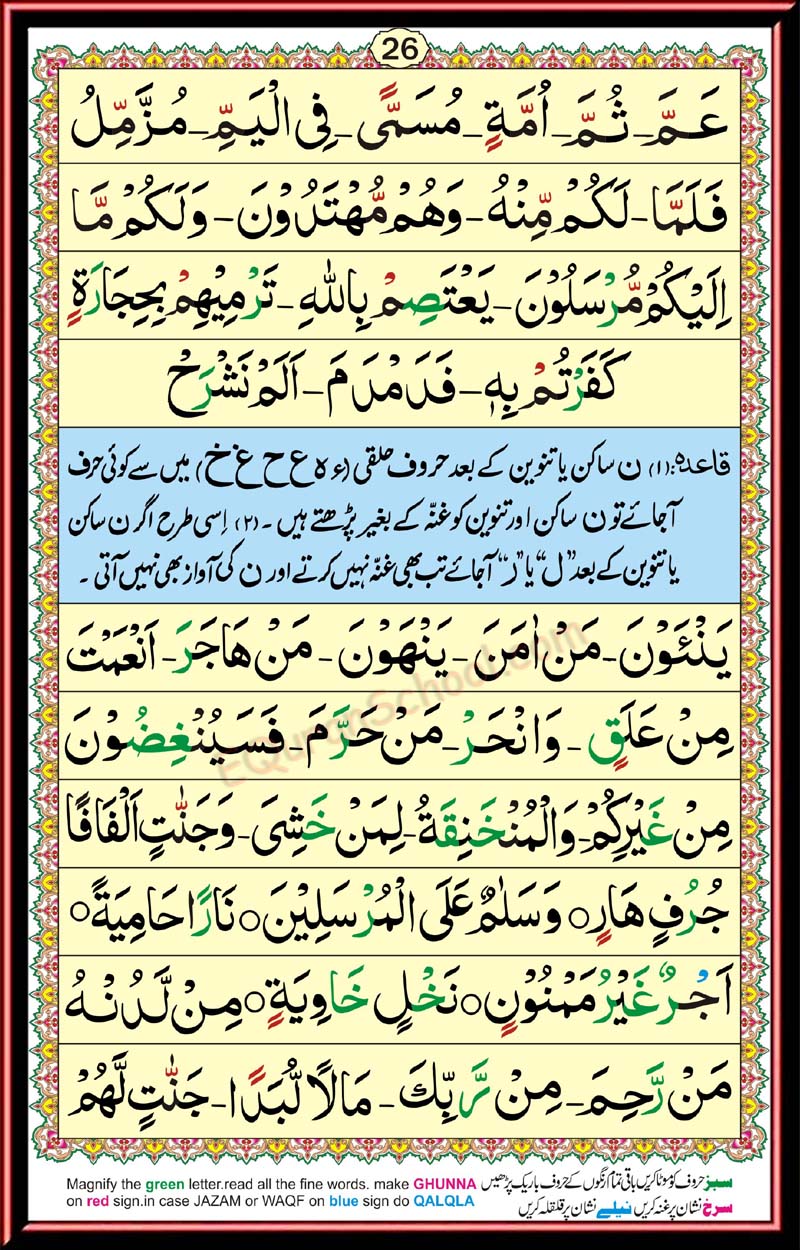 26
عَمَّ - ثُمَّ - اُمَّةٍ - مُسَمًّى - فِى الْيَمِّ - مُزَّمِّلُ
فَلَمَّا - لَكُمْ مِّنْهُ - وَهُمْ مُّهْتَدُوْنَ - وَلَكُمْ مَّا
اِلَيْكُمْ مُّرْسَلُوْنَ - يَعْتَصِمْ بِاللّٰهِ - تَرْمِيْهِمْ بِحِجَارَةٍ
كَفَرْتُمْ بِهٖ - فَدَمْدَمَ - اَلَمْ نَشْرَحْ
قاعدہ: (۱) ن ساکن یا تنوین کے بعد حروف حلقی (ء ہ ع ح غ خ) میں سے کوئی حرف
آجائے تو ن ساکن اور تنوین کو غنّہ کے بغیر پڑھتے ہیں ۔ (۲) اِسی طرح اگر ن ساکن
یا تنوین کے بعد ”ل“ یا ”ر“ آجائے تب بھی غنّہ نہیں کرتے اور ن کی آواز بھی نہیں آتی ۔
يَنْئَوْنَ - مَنْ اٰمَنَ - يَنْهَوْنَ - مَنْ هَاجَرَ - اَنْعَمْتَ
مِنْ عَلَقٍ - وَانْحَرْ - مَنْ حَرَّمَ - فَسَيُنْغِضُوْنَ
مِنْ غَيْرِكُمْ - وَالْمُنْخَنِقَةُ - لِمَنْ خَشِىَ - وَجَنّٰتٍ اَلْفَافًا
جُرُفٍ هَارٍ ○ وَسَلٰمٌ عَلَى الْمُرْسَلِيْنَ ○ نَارًا حَامِيَةً ○
اَجْرٌ غَيْرُ مَمْنُوْنٍ ○ نَخْلٍ خَاوِيَةٍ ○ مِنْ لَّدُنْهُ
مَنْ رَّحِمَ - مِنْ رَّبِّكَ - مَالًا لُّبَدًا - جَنّٰتٍ لَّهُمْ
eQuranSchool.com
Magnify the green letter.read all the fine words. make GHUNNA
on red sign.in case JAZAM or WAQF on blue sign do QALQLA
سبز حروف کو موٹا کریں باقی تمام رنگوں کے حروف باریک پڑھیں
سرخ نشان پر غنہ کریں نیلے نشان پر قلقلہ کریں